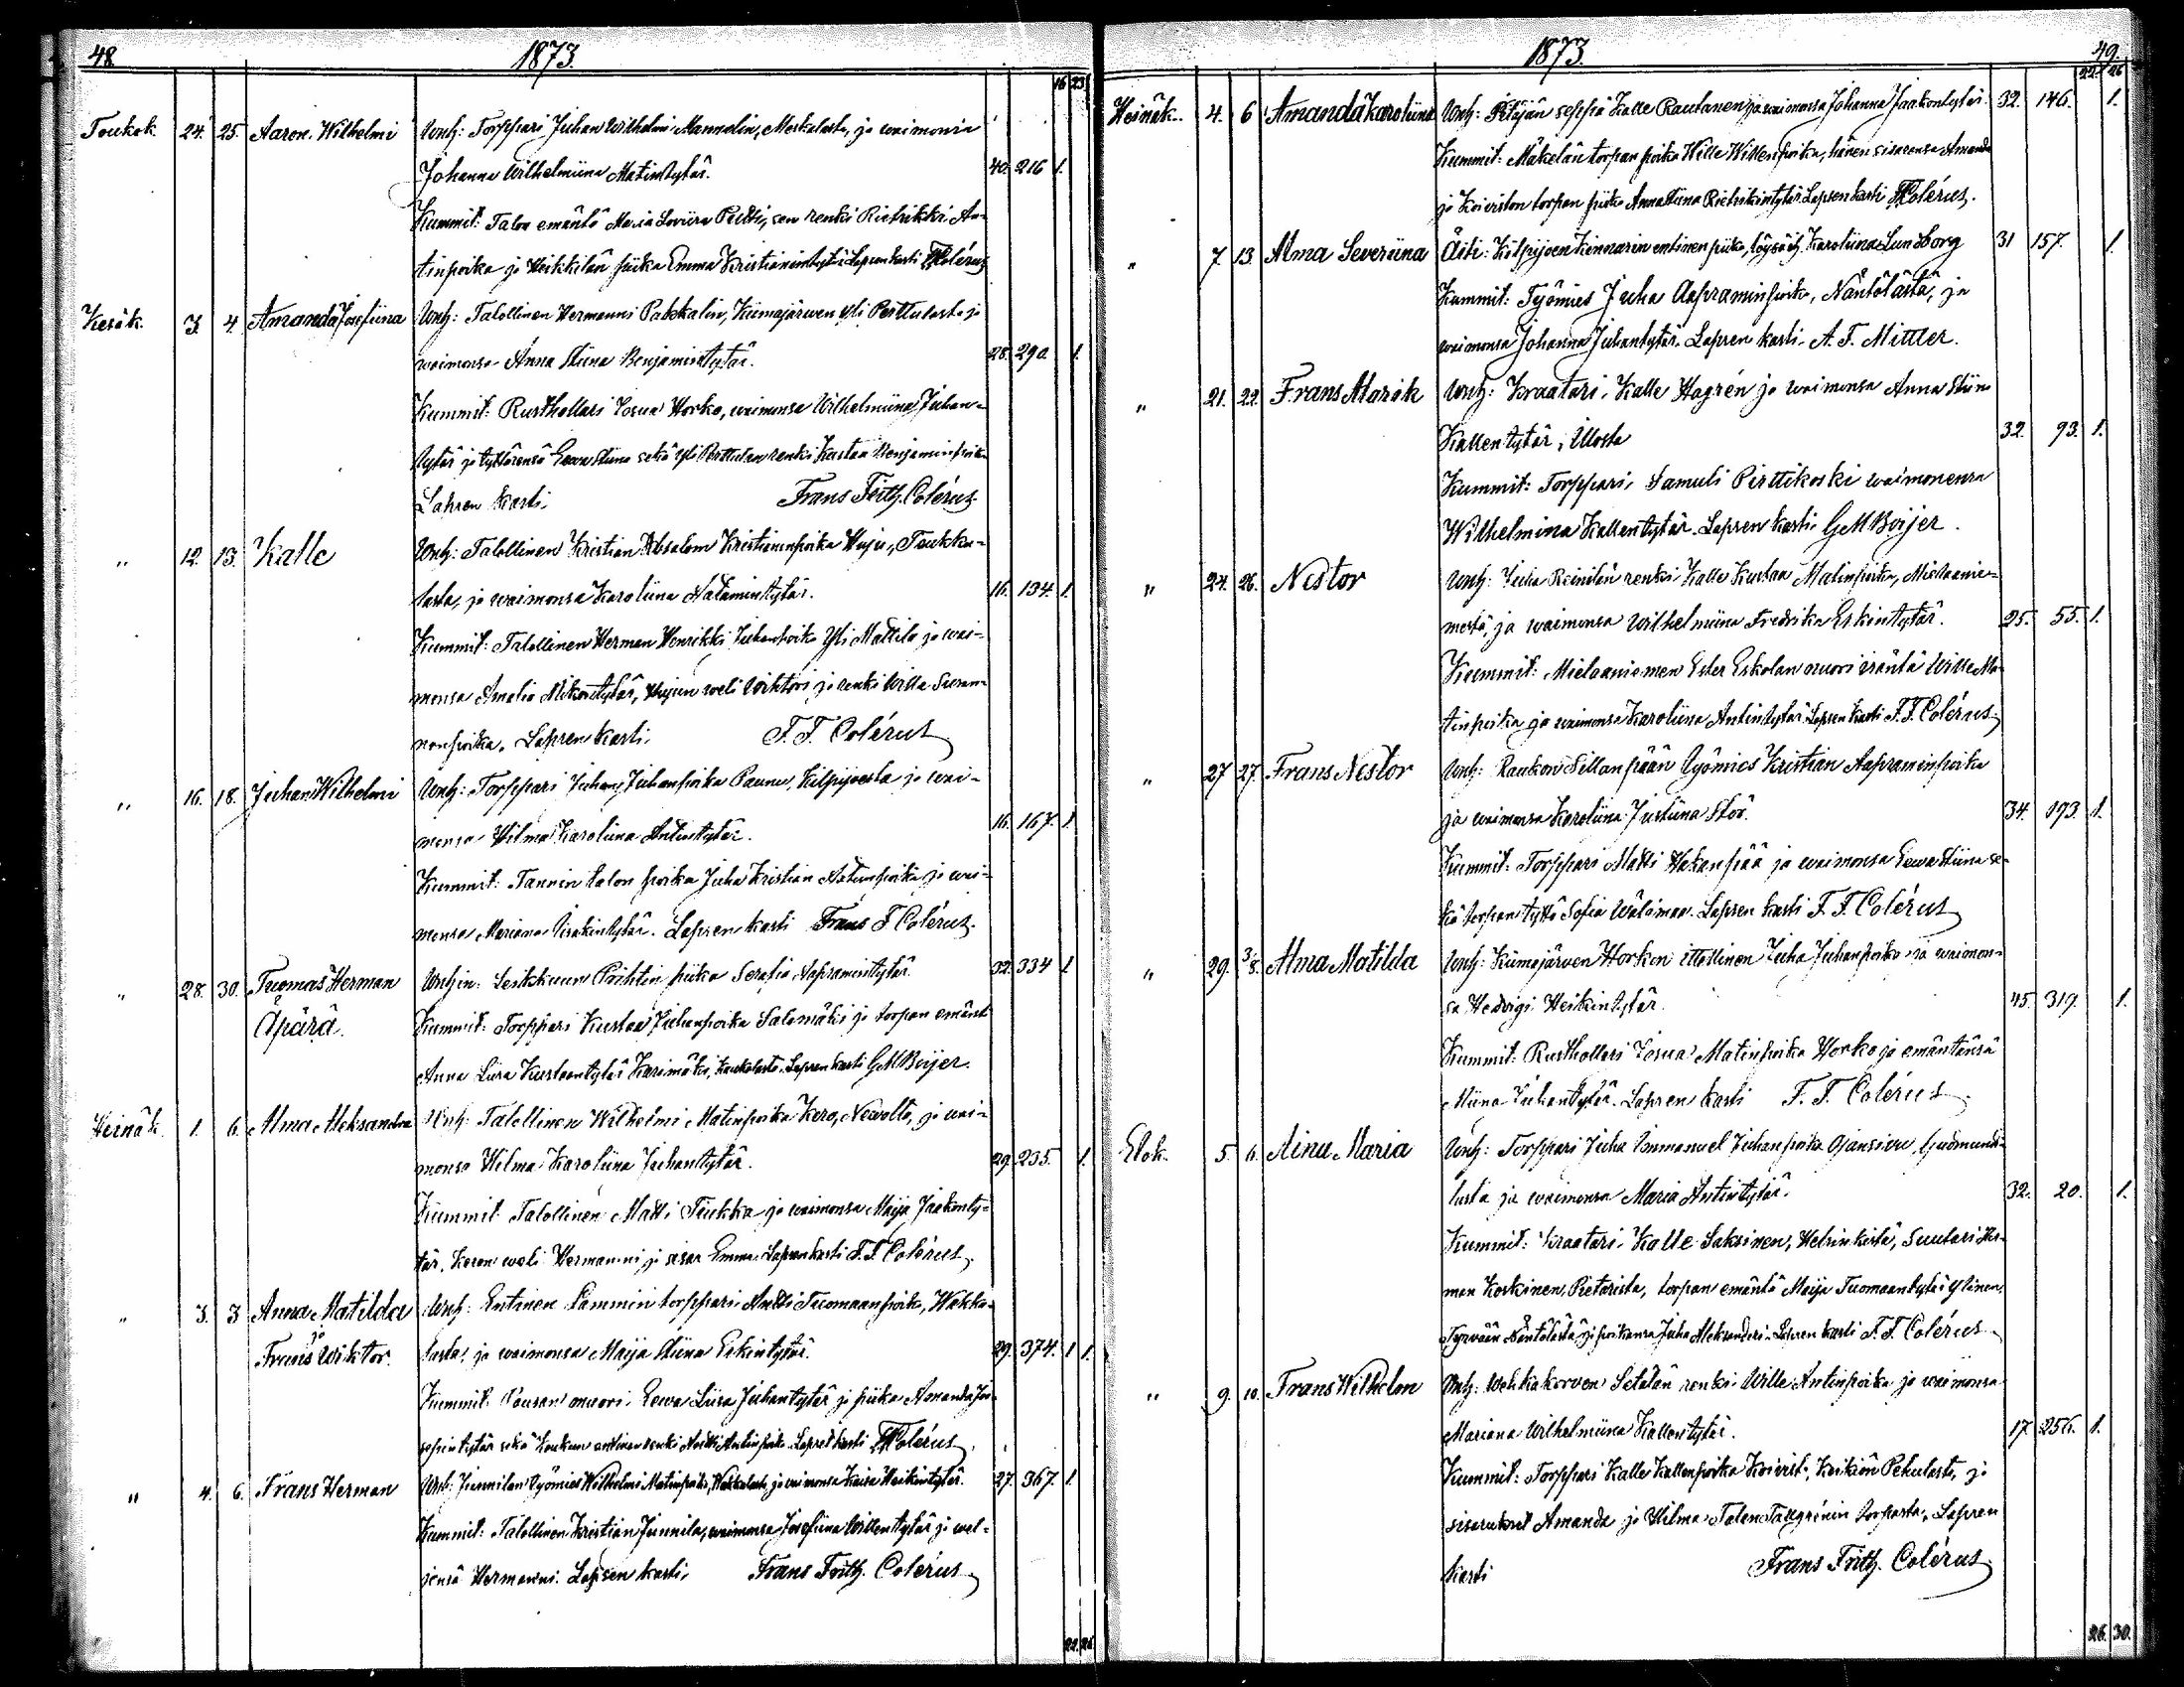 48
1873.
16 23
Toukok. 24. 25. Aaron Wilhelmi Wnh: Torppari Juhan Wilhelmi Mannelin, Meskalasta, ja waimonsa
Johanna Wilhelmiina Matintytär. 40. 216 1.
Kummit: Talon emäntä Maria Loviisa Pietti, sen renki Rietrikki An-
tinpoika ja Heikkilän piika Emma Kristianintytär. Lapsen kasti FFColérus
Kesäk. 3 4. Amanda Josefiina Wnh: Talollinen Hermanni Pakkalin, Kiimajärwen Yli Perttulasta ja
waimonsa Anna Stiina Benjamintytär. 28. 290. 1.
Kummit: Rusthollari Josua Horko, waimonsa Wilhelmiina Juhan-
tytär ja tyttärensä Eewa Stiina sekä Yli Perttulan renki Kustaa Benjaminpoika
Lapsen kasti. Frans Frith. Colérus
" 12. 13. Kalle Wnh: Talollinen Kristian Absalom Kristianinpoika Huju, Taukka-
lasta, ja waimonsa Karoliina Natamintytär. 16. 134. 1.
Kummit: Talollinen Herman Henrikki Juhanpoika Yli Mattila ja wai-
monsa Amalia Mikontytär, Hujun weli Wihtori ja renki Wille Susan-
nanpoika. Lapsen kasti. F. F. Colérus
" 16. 18. Juhan Wilhelmi Wnh: Torppari Juhan Juhanpoika Paunu, Kilpijoesta ja wai-
monsa Hilma Karoliina Antintytär. 16. 167. 1
Kummit: Tannin talon poika Juha Kristian Natanpoika ja wai-
monsa Mariana Iisakintytär. Lapsen kasti Frans F. Colérus.
" 28. 30. Tuomas Herman Wnhin: Leikkuun Prihtin piika Serafia Aapramintytär 32. 334 1
Äpärä. Kummit: Torppari Kustaa Juhanpoika Salomäki ja torpan emäntä
Anna Liisa Kustaantytär Karimäki, Kaukolasta. Lapsen kasti GMBoijer.
Heinäk. 1. 6. Alma Aleksandra Wnh: Talollinen Wilhelmi Matinpoika Kero, Newolta, ja wai-
monsa Hilma Karoliina Juhantytär. 29. 235. 1.
Kummit Talollinen Matti Tiukka ja waimonsa Maija Jaakonty-
tär, Keron weli Hermanni ja sisar Emma. Lapsen kasti F. F. Colérus.
" 3. 3 Anna Matilda Wnh: Entinen Lammin torppari Antti Tuomaanpoika, Wakka-
ja
Frans Wiktor. lasta, ja waimonsa Maija Stiina Erkintytär. 29. 374. 1 1.
Kummit: Pousan muori Eewa Liisa Juhantytär ja piika Amanda Joo-
sepintytär sekä Koukun entinen renki Antti Antinpoika. Lapset kasti FFColérus.
" 4. 6. Frans Herman Wnh: Junnilan työmies Wilhelmi Matinpoika, Wakkalasta, ja waimonsa Kaisa Heikintytär. 27. 367. 1.
Kummit: Talollinen Kristian Junnila, waimonsa Josefiina Willentytär ja wel-
jensä Hermanni. Lapsen kasti. Frans Frith. Colérus
22. 26.
1873. 49.
22. 26
Heinäk. 4. 6 Amanda Karoliina Wnh: Pitäjän seppä Kalle Rautanen ja waimonsa Johanna Jaakontytär. 32. 146. 1.
Kummit: Mäkelän torpan poika Wille Willenpoika, hänen sisarensa Amanda
ja Koiviston torpan piika Anna Stiina Rietrikintytär. Lapsen kasti FFColérus.
" 7. 13. Alma Severiina Äiti: Kilpijoen Kinnarin entinen piika, Karoliina Lundborg 31 157. 1.
Kummit: Työmies Juha Aapraminpoika, Näntölästä, ja
waimonsa Johanna Juhantytär. Lapsen kasti A. F. Mittler.
" 21. 22. Frans Mar Wnh: Kraatari, Kalle Hagrén ja waimonsa Anna Stiina
Kallentytär, Illosta 32. 93. 1.
Kummit: Torppari, Samuli Pirttikoski waimonensa
Wilhelmina Kallentytär. Lapsen kasti GMBoijer.
" 24. 26. Nestor Wnh: Juha Reinilän renki Kalle Kustaa Matinpoika, Mielaanie-
mestä, ja waimonsa Wilhelmiina Fredrika Erkintytär. 25. 55. 1.
Kummit: Mielaaniemen Esko Eskolan nuori isäntä Wille Ma-
tinpoika ja waimonsa Karoliina Antintytär. Lapsen kasti F. F. Colérus
" 27 27. Frans Nestor Wnh: Raukon Sillanpään työmies Kristian Aapraminpoika
ja waimonsa Karoliina Justiina Stör. 34. 193. 1.
Kummit: Torppari Matti Hakanpää ja waimonsa Eewa Stiina se-
kä torpan tyttö Sofia Wälimaa. Lapsen kasti F. F. Colérus
" 29. 3/8. Alma Matilda Wnh: Kiimajärven Horkon itsellinen Juha Juhanpoika ja waimon-
sa Hedvigi Heikintytär. 45. 319. 1.
Kummit: Rusthollari Josua Matinpoika Horko ja emäntänsä
Miina Juhantytär. Lapsen kasti F. F. Colérus.
Elok. 5. 6. Aina Maria Wnh: Torppari Juha Immanuel Juhanpoika Ojansivu, Gudmundi-
lasta ja waimonsa Maria Antintytär. 32. 20. 1.
Kummit: Kraatari, Kalle Saksinen, Helsinkistä, Suutari Her-
man Koskinen, Pietarista, torpan emäntä Maija Tuomaantytär Ylinen,
Tyrwään Näntölästä ja poikansa Juha Aleksanderi. Lapsen kasti F. F. Colérus
" 9. 10. Frans Wilhelm Wnh: Wehkakorven Setälän renki Wille Antinpoika ja waimonsa
Mariana Wilhelmiina Kallentytär. 17. 256. 1.
Kummit: Torppari Kalle Kallenpoika Koivist, Karikin Pehulast, ja
sisarukset Amanda ja Hilma Tallgrénin torpasta, Lapsen
kasti Frans Frith. Colérus
26. 30.